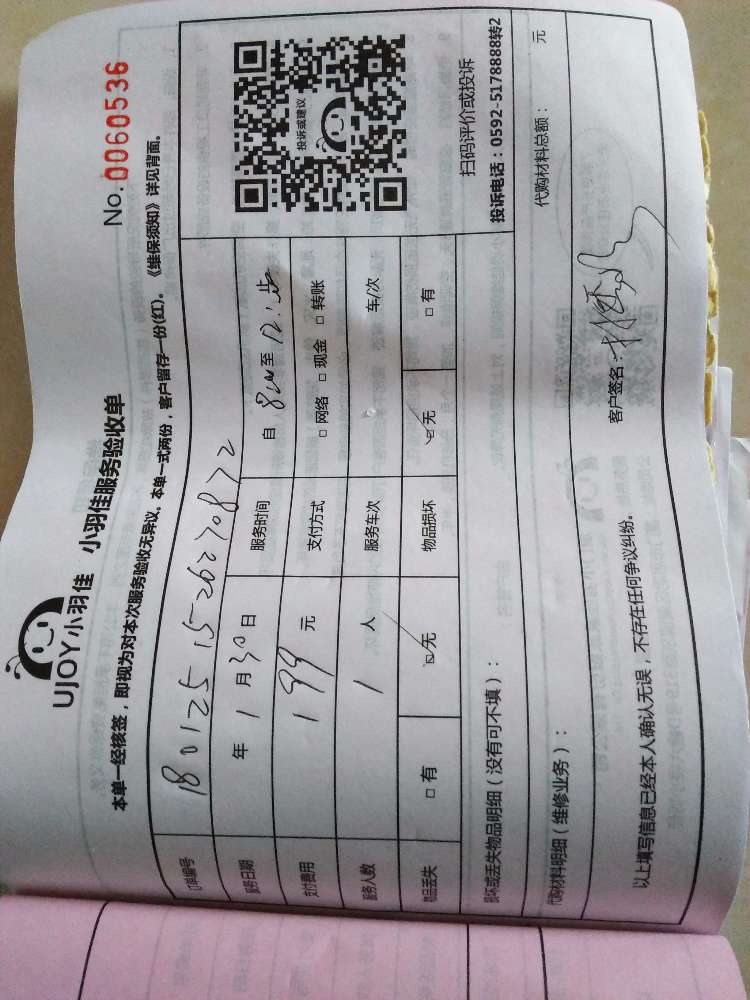 UJOY小羽佳 小羽佳服务验收单
No. 0060536
本单一经核签，即视为对本次服务验收无异议。本单一式两份，客户留存一份(红)。《维保须知》详见背面。
订单编号 1801251526270872
服务日期 年 1 月 30 日 服务时间 自 8:00 至 12:
支付费用 199 元 支付方式 □ 网络 □ 现金 □ 转账
服务人数 1 人 服务车次 车/次
物品丢失 □ 有 ☑ 无 物品损坏 ☑ 无 □ 有
投诉或建议
扫码评价或投诉
投诉电话：0592-5178888转2
损坏或丢失物品明细（没有可不填）：
代购材料明细（维修业务）： 代购材料总额： 元
以上填写信息已经本人确认无误，不存在任何争议纠纷。 客户签名：